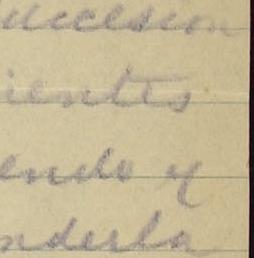 uccesion
ientes
endo y
nderla